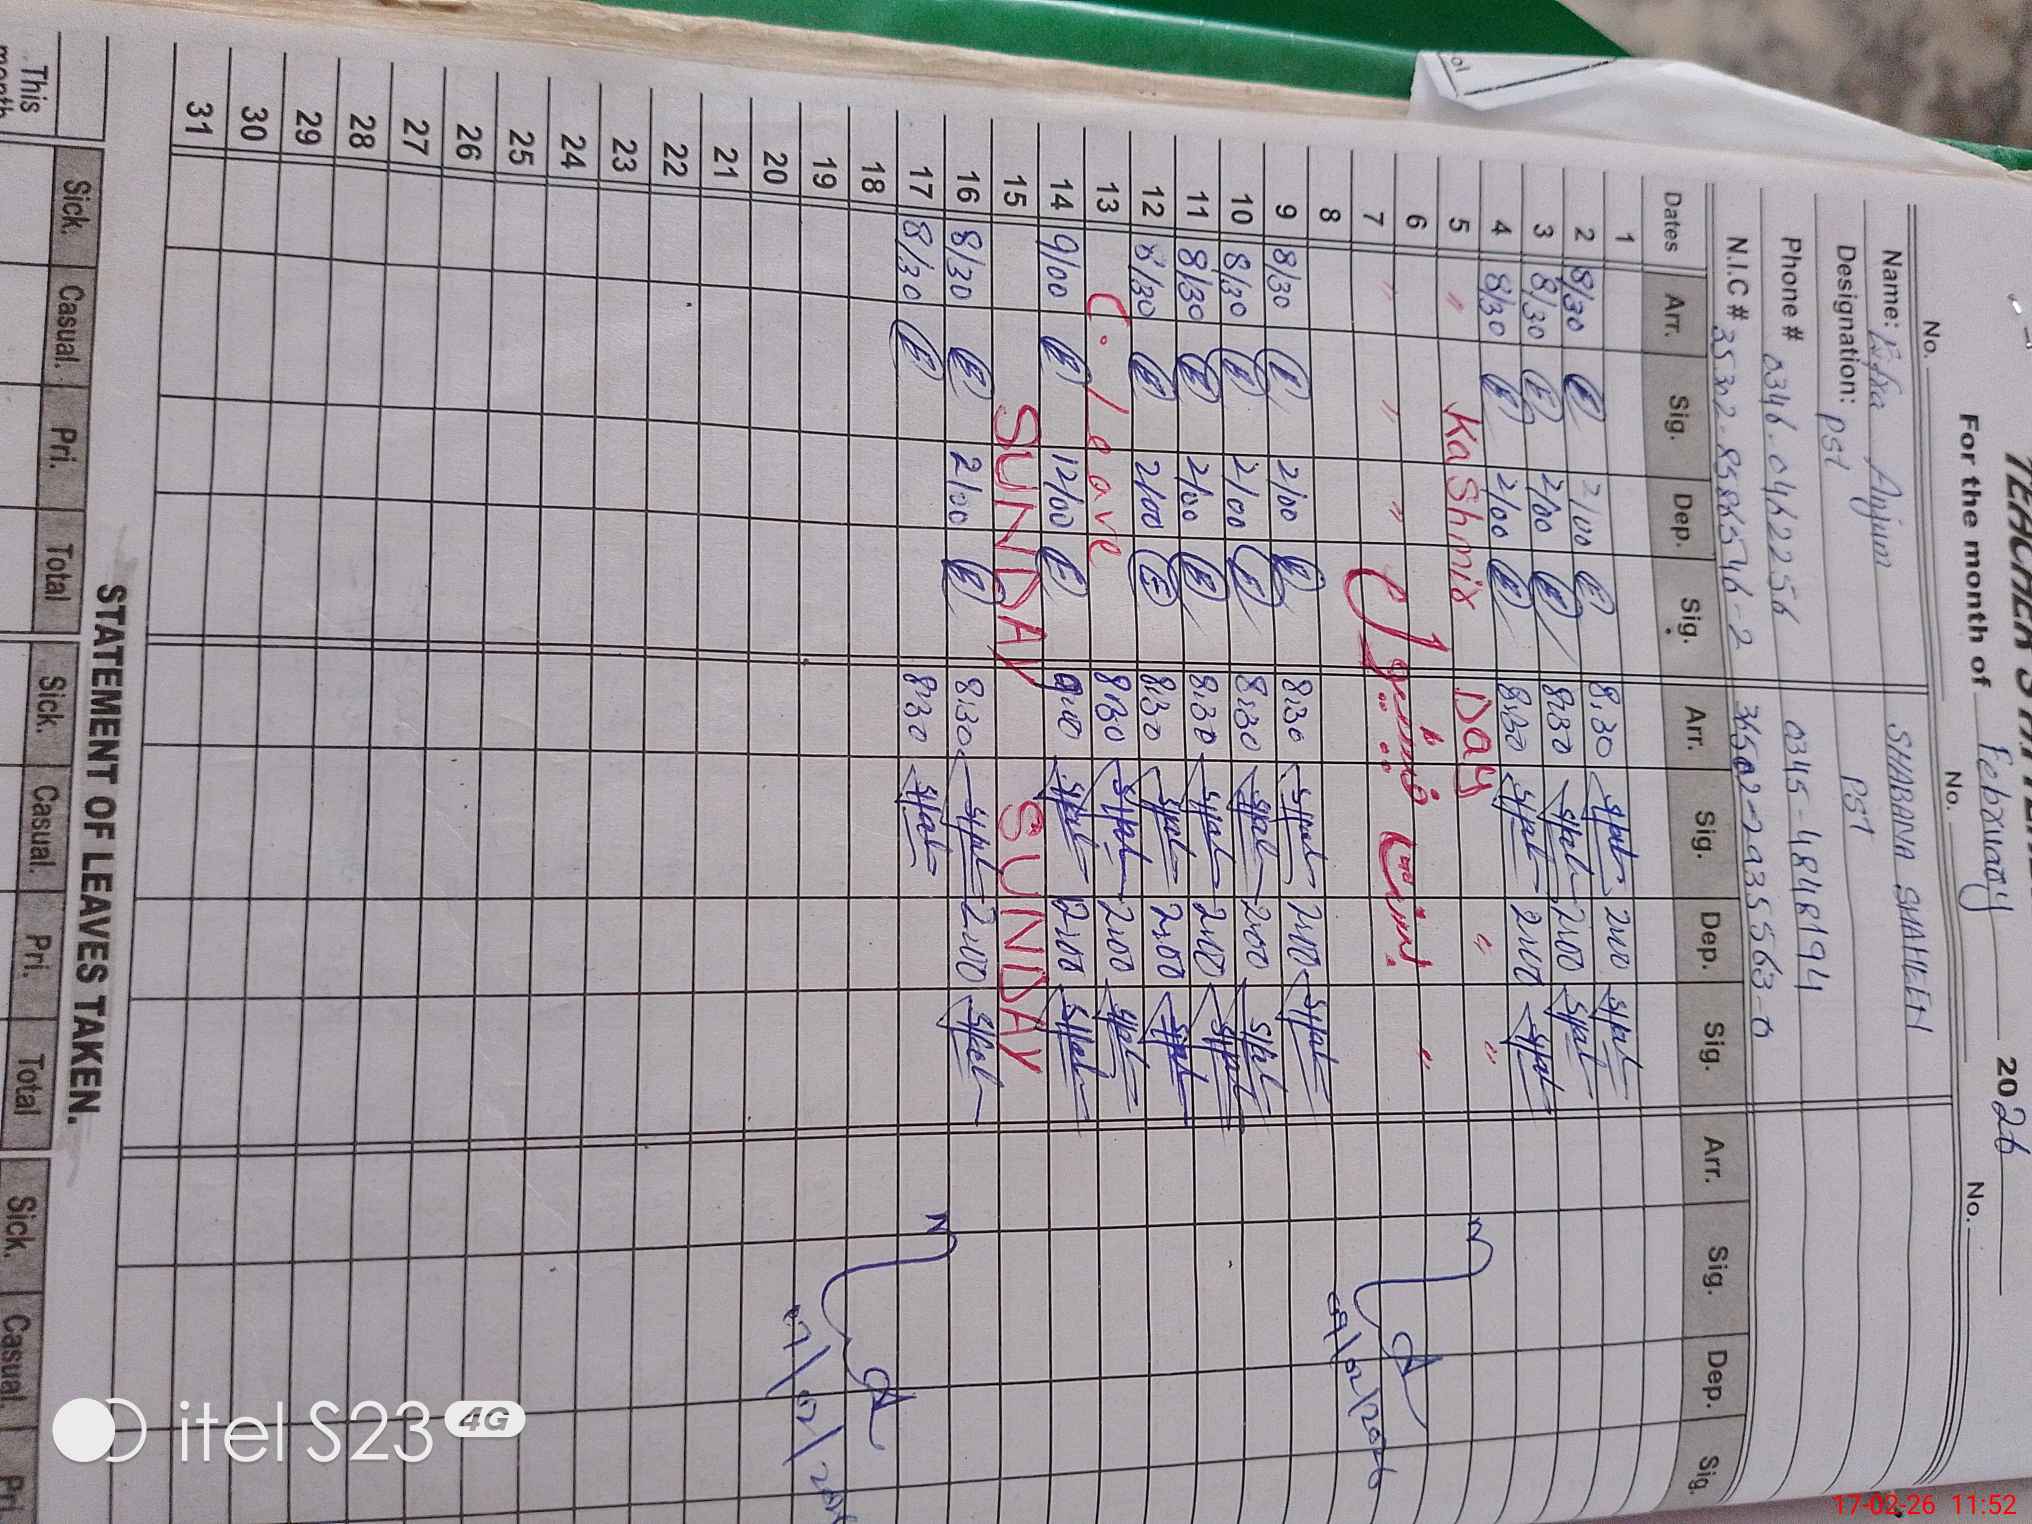 For the month of February 2026
No. No. No.
Name: Anjum SHABANA SHAHEEN
Designation: PST PST
Phone # 0346-0462256 0345-4848194
N.I.C #
Dates Arr. Sig. Dep. Sig. Arr. Sig. Dep. Sig. Arr. Sig. Dep. Sig.
1
2 8/30 2/00 8:30 2:00
3 8/30 2/00 8:30 2:00
4 8/30 2/00 8:30 2:00
5 " Kashmir Day " "
6
7 " " " "
8
9 8/30 2/00 8:30 2:00
10 8/30 2/00 8:30 2:00
11 8/30 2/00 8:30 2:00
12 8/30 2/00 8:30 2:00
13 C. Leave 8:30 2:00
14 9/00 12/00 9:00 12:00
15 SUNDAY SUNDAY
16 8/30 2/00 8:30 2:00
17 8/30 8:30
18
19
20
21
22
23
24
25
26
27
28
29
30
31
09/02/2026
STATEMENT OF LEAVES TAKEN.
Sick. Casual. Pri. Total Sick. Casual. Pri. Total Sick. Casual Pri
This month
itel S23 4G
17-02-26 11:52